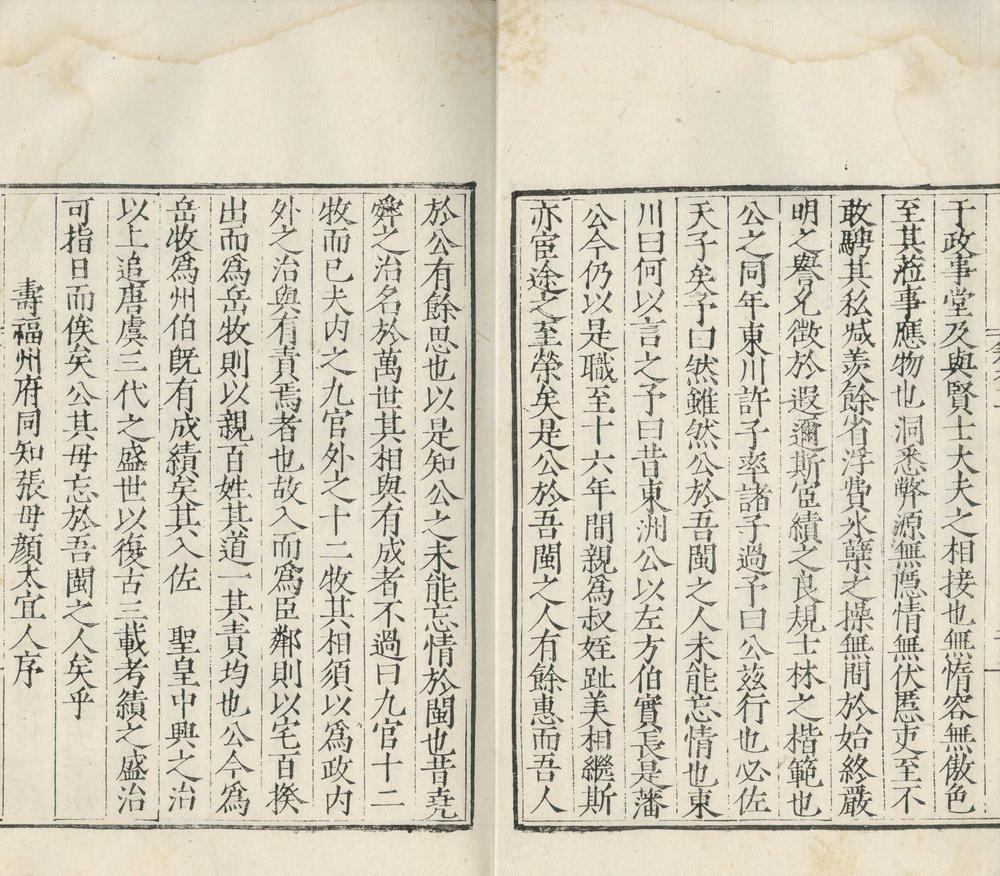 于政事堂及與賢士大夫之相接也無惰容無傲色
至其蒞事應物也洞悉弊源無隱情無伏慝吏至不
敢騁其私缄羨餘省浮費氷孽之操無間於始終嚴
明之譽允徵於遐邇斯宦績之良規士林之楷範也
公之同年東川許子率諸子過予曰公茲行也必佐
天子矣予曰然雖然公於吾閩之人未能忘情也東
川曰何以言之予曰昔東洲公以左方伯實長是藩
公今仍以是職至十六年間親爲叔姪趾美相繼斯
亦宦途之至榮矣是公於吾閩之人有餘惠而吾人
於公有餘思也以是知公之未能忘情於閩也昔堯
舜之治名於萬世其相與有成者不過曰九官十二
牧而已夫内之九官外之十二牧其相須以爲政内
外之治與有責焉者也故入而爲臣鄰則以宅百揆
出而爲岳牧則以親百姓其道一其責均也公今爲
岳牧爲州伯旣有成績矣其入佐　聖皇中興之治
以上追唐虞三代之盛世以復古三載考績之盛治
可指日而俟矣公其毋忘於吾閩之人矣乎
壽福州府同知張母顔太宜人序